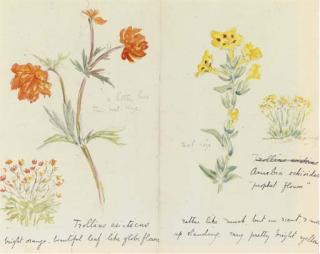 a little less
than nat. size
Trollius asiaticus
bright orange - beautiful leaf like globe flower
nat. size
Arnebia echioides
"prophet flower"
rather like musk but
up standing very pretty bright yellow